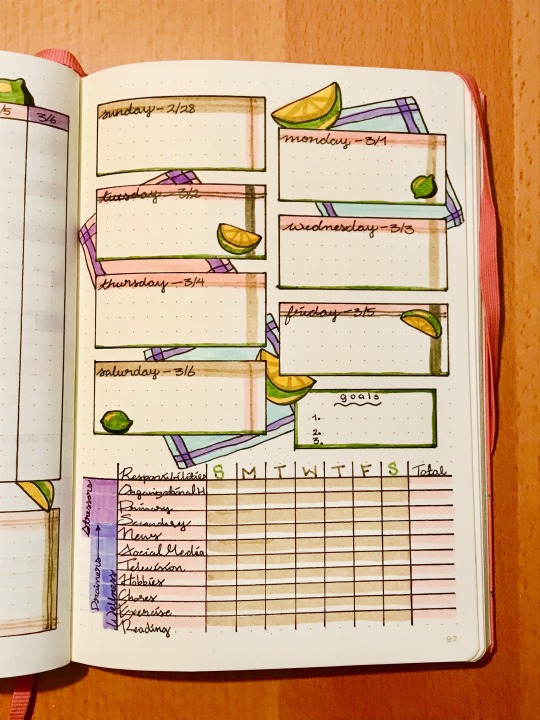 /5
3/6
sunday - 2/28
monday - 3/1
tuesday - 3/2
wednesday - 3/3
thursday - 3/4
friday - 3/5
saturday - 3/6
goals
1.
2.
3.
Responsibilities S M T W T F S Total
Organizational H
Primary
Secondary
News
Social Media
Television
Hobbies
Chores
Exercise
Reading
Stressors
Drainers
Wellness
97